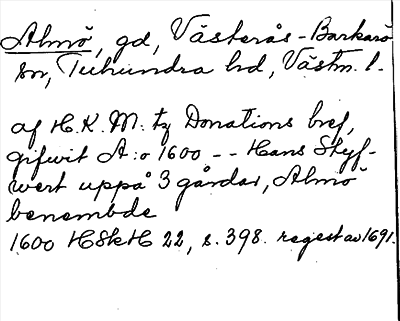 Almö, gd, Västerås-Barkarö
sn, Tuhundra hd, Västm. l.
af H.K.M:tz Donations bref,
gifwit A:o 1600 -- Hans Skyf-
wert uppå 3 gårdar, Almö
benembde
1600 HSkH 22, s. 398. regest av 1691.